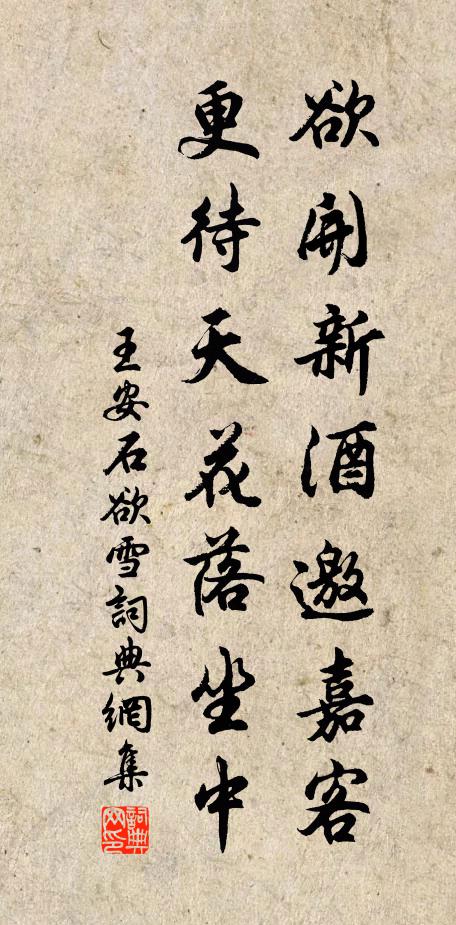 欲開新酒邀嘉客
更待天花落坐中
王安石欲雪詞典網集
詞典网印